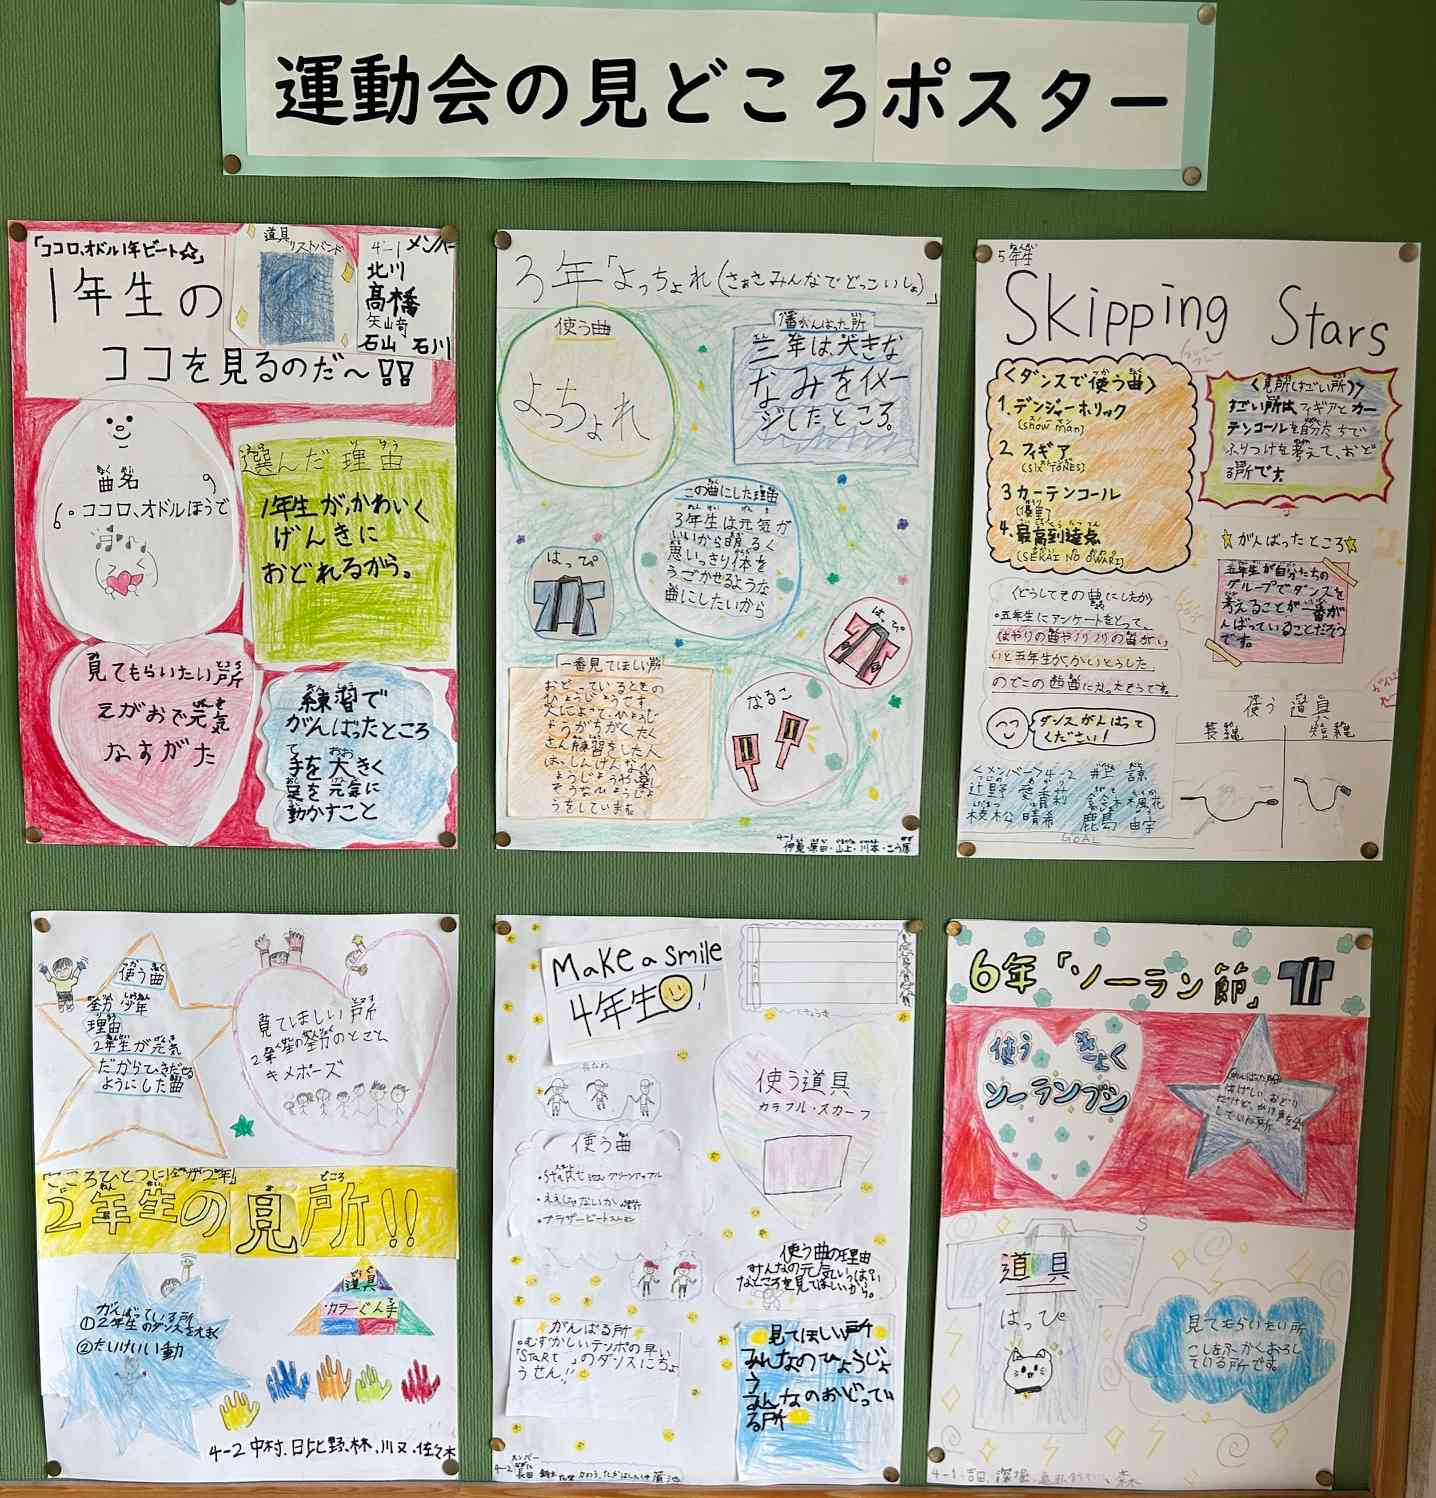 運動会の見どころポスター
「ココロ、オドル1年ビート☆」
1年生の
ココを見るのだ〜!!
道具
リストバンド
4-1 メンバー
北川
髙橋
石山 石川
曲名
ココロ、オドルほうで
選んだ理由
1年生が、かわいく
げんきに
おどれるから。
見てもらいたい所
えがおで元気
なすがた
練習で
がんばったところ
手を大きく
足を元気に
動かすこと
3年「よっちょれ(さぁさみんなでどっこいしょ)」
使う曲
よっちょれ
1番がんばった所
三年は、大きな
なみをイメー
ジしたところ。
この曲にした理由
3年生は元気が
いいから明るく
思いっきり体を
うごかせるような
曲にしたいから
はっぴ
はっぴ
なるこ
一番見てほしい所
おどっているときの
ひょうじょうです
人によって、ひょうじ
ょうがちがく、たく
さん練習をした人
はしんけんなひ
ょうじょうや楽し
そうなひょうじょ
うをしています。
4-1
5年生
Skipping Stars
〈ダンスで使う曲〉
1. デンジャーホリック
(snow man)
2 フィギア
(SixTONES)
3 カーテンコール
(優里)
4. 最高到達点
(SEKAI NO OWARI)
〈見所(すごい所)〉
すごい所は、フィギアとカー
テンコールを自分たちで
ふりつけを考えて、おど
る所です。
☆がんばったところ☆
五年生が自分たちの
グループでダンスを
考えることが一番が
んばっていることだそう
です。
〈どうしてその曲にしたか〉
・五年生にアンケートをとって、
はやりの曲やノリノリの曲がい
いと五年生が、かいとうした
のでこの曲に決まったそうです。
ダンスがんばって
ください!
使う道具
長縄 短縄
〈メンバー〉4-2 井上 諒
辻野 愛香莉 鈴木 楓花
枝松 晴希 鹿島 由宇
GOAL
使う曲
理由
2年生が元気
だからひきだせる
ようにした曲
見てほしい所
キメポーズ
こころひとつに
2年生の見所!!
がんばっている所
①2年生のダンスを大きく
②たいけいい動
道具
カラーぐん手
4-2 中村、日比野、林、川又、佐々木
Make a smile
4年生!
長なわ
使う曲
・ええじゃないか
・ブラザービート
使う道具
カラフル・スカーフ
使う曲の理由
みんなの元気いっぱい
なところを見てほしいから。
がんばる所
・むずかしいテンポの早い
「StaRt」のダンスにちょ
うせん!!
見てほしい所
みんなのひょうじょ
う
みんなのおどってい
る所
メンバー
4-2
6年「ソーラン節」
使うきょく
ソーランブシ
がんばった所
はげしいおどり
だけど、かけ声を
していた所
道具
はっぴ
見てもらいたい所
こしをふかくおろし
ている所です。